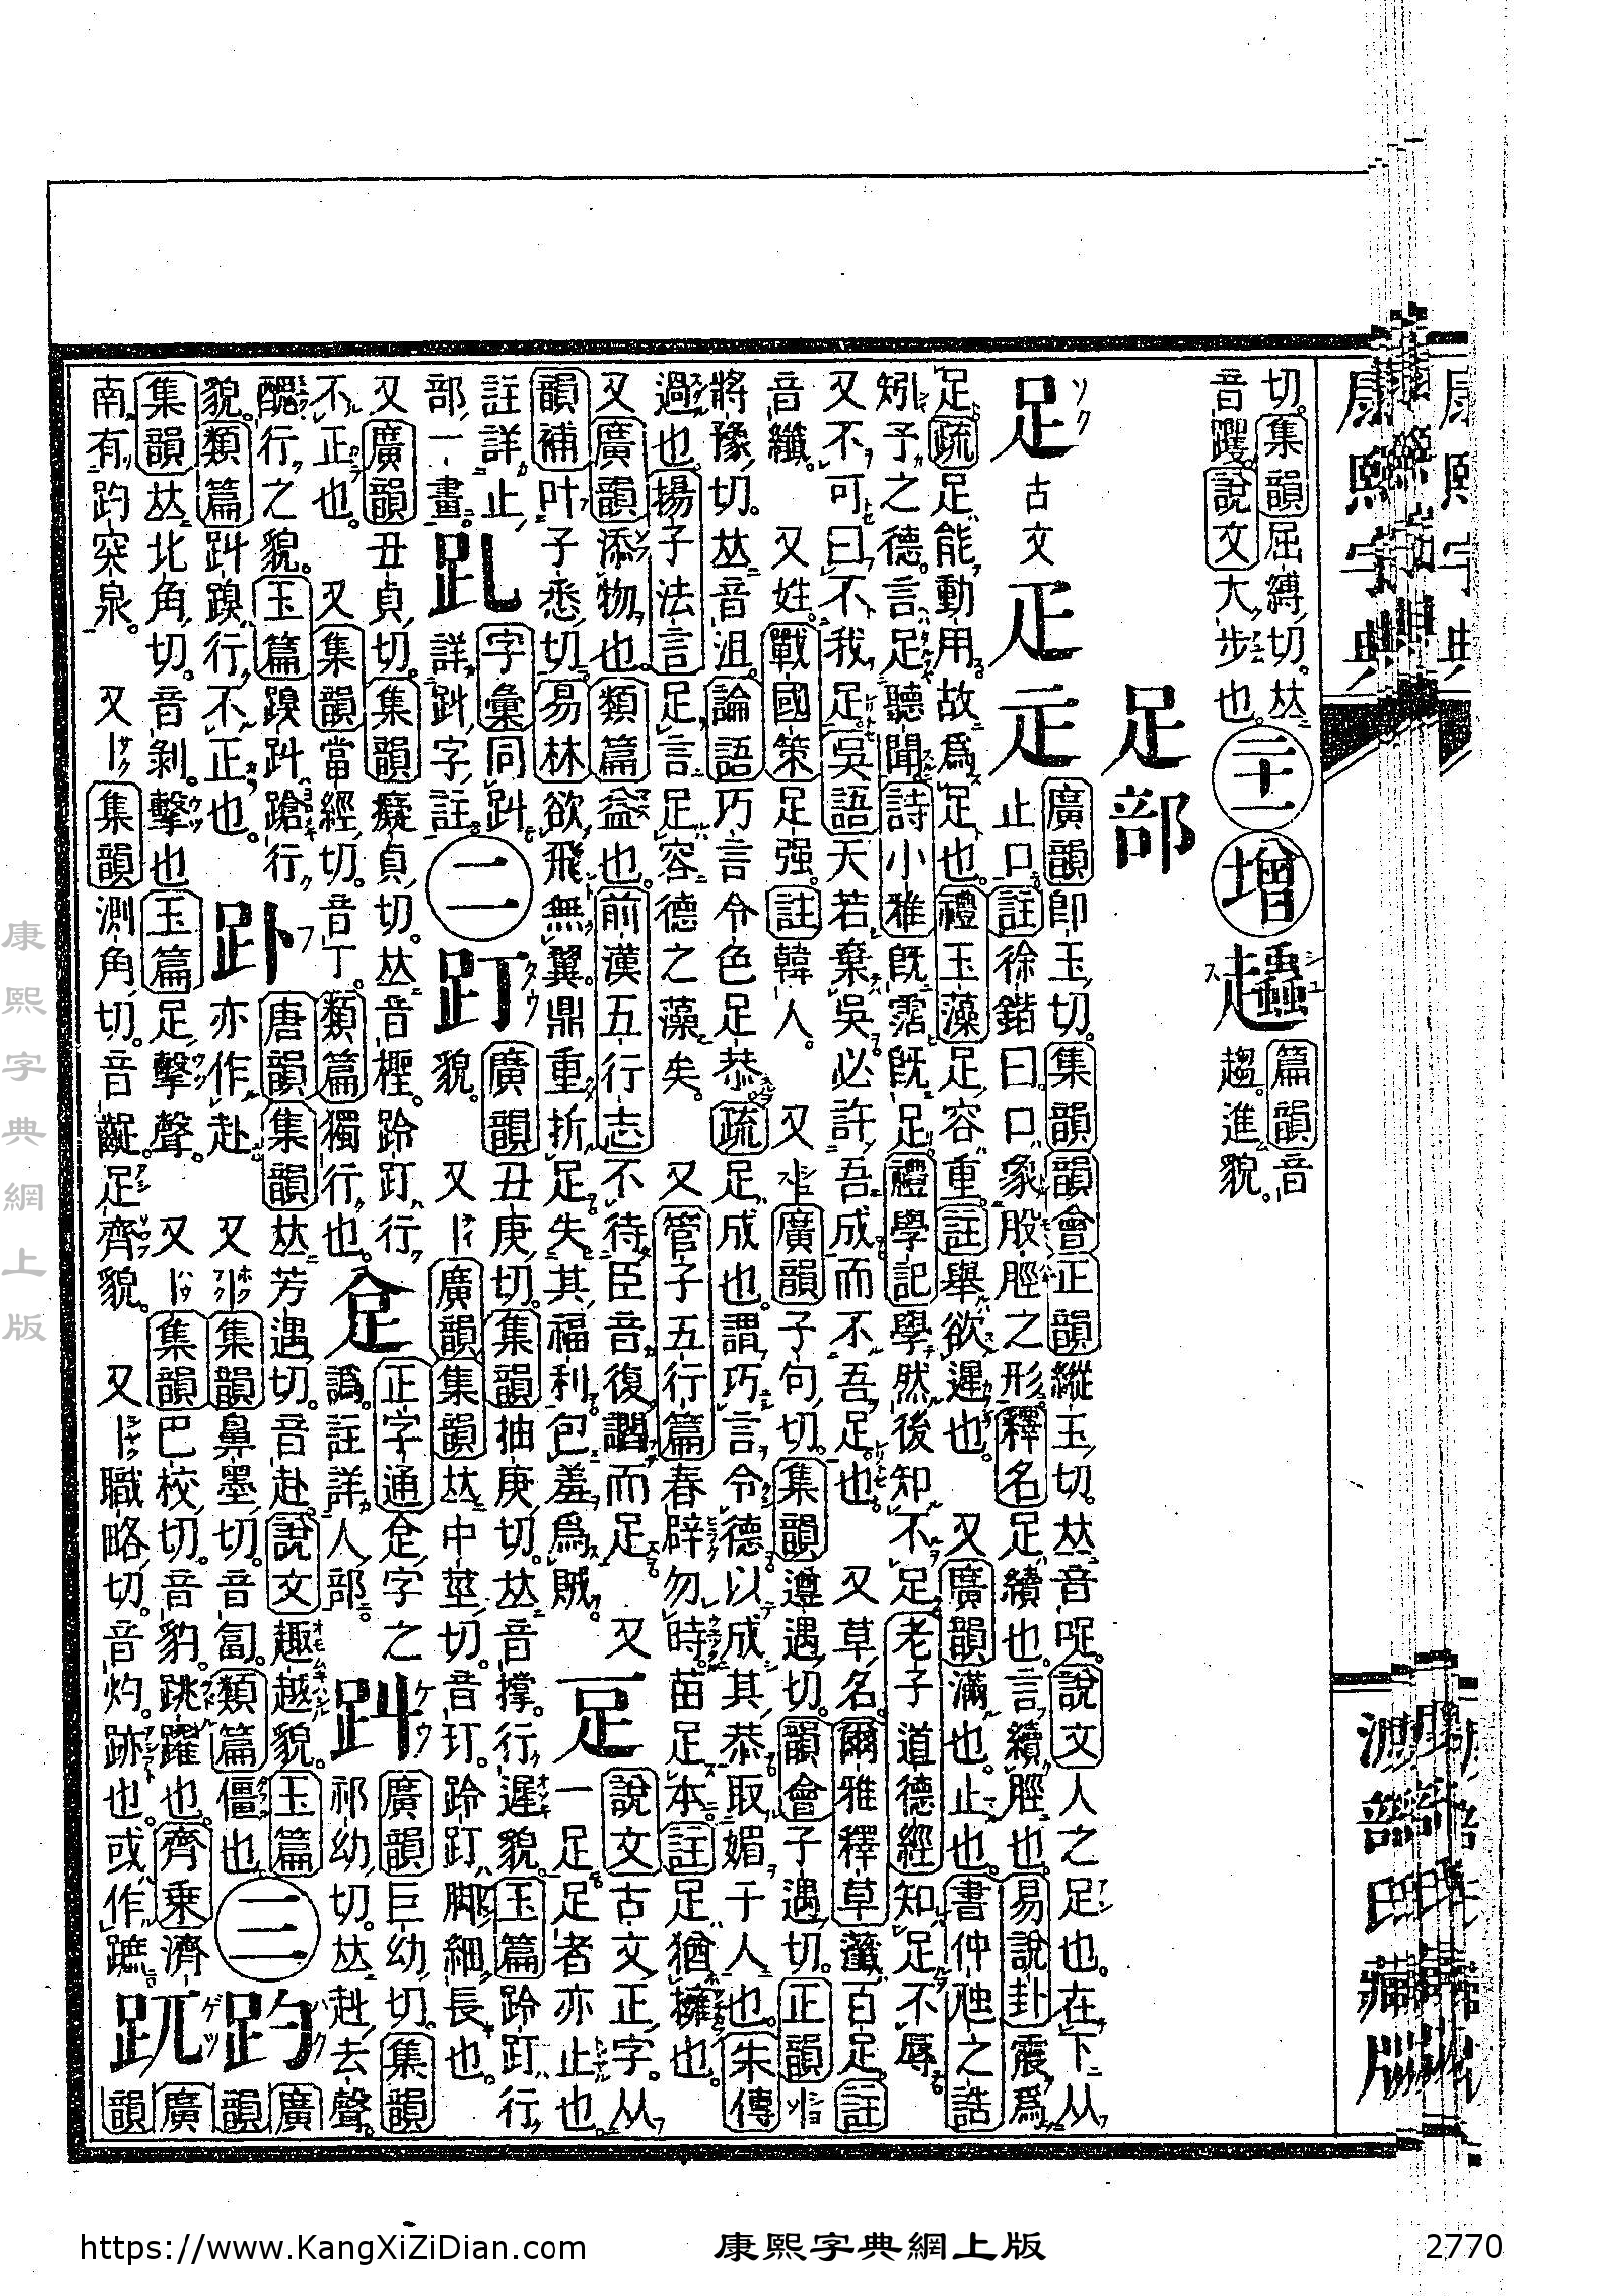 切集韻屈縛切𠀤
音躩說文大步也
二十一
增
篇韻音
趨進貌
足部
足 古文 疋 𤴕
廣韻卽玉切集韻韻會正韻縱玉切𠀤音哫說文人之足也在下从
止口註徐鍇曰口象股脛之形釋名足續也言續脛也易說卦震爲
足疏足能動用故爲足也禮玉藻足容重註舉欲遲也 又廣韻滿也止也書仲虺之誥
矧予之德言足聽聞詩小雅旣霑旣足禮學記學然後知不足老子道德經知足不辱
又不可曰不我足吳語天若棄吳必許吾成而不吾足也 又草名爾雅釋草虃百足註
音纖 又姓戰國策足强註韓人 又廣韻子句切集韻遵遇切韻會子遇切正韻
將豫切𠀤音沮論語巧言令色足恭疏足成也謂巧言令德以成其恭取媚于人也朱傳
過也揚子法言足言足容德之藻矣 又管子五行篇春辟勿時苗足本註足猶擁也
又廣韻添物也類篇益也前漢五行志不待臣音復讇而足 又
韻補叶子悉切易林欲飛無翼鼎重折足失其福利包羞爲賊
𤴓 說文古文正字从
一足足者亦止也
註詳止
部一畫
字彙同
詳字註
二
趶 廣韻丑庚切集韻抽庚切𠀤音撑行遲貌玉篇跉趶行
貌 又廣韻集韻𠀤中莖切音玎跉趶脚細長也
又廣韻丑貞切集韻癡貞切𠀤音檉跉趶行
不正也 又集韻當經切音丁類篇獨行也
正字通𠈮字之
譌註詳人部
廣韻巨幼切集韻
祁幼切𠀤赳去聲
醜行之貌玉篇行
貌類篇行不正也
趴 唐韻集韻𠀤芳遇切音赴說文趣越貌玉篇
亦作赴 又集韻鼻墨切音匐類篇僵也
三
趵 廣韻
集韻𠀤北角切音剝擊也玉篇足擊聲 又集韻巴校切音豹跳躍也齊乗濟
南有趵突泉 又集韻測角切音齪足齊貌 又職略切音灼跡也或作蹠
趷 廣韻
康熙字典網上版
https://www.KangXiZiDian.com
康熙字典網上版
2770